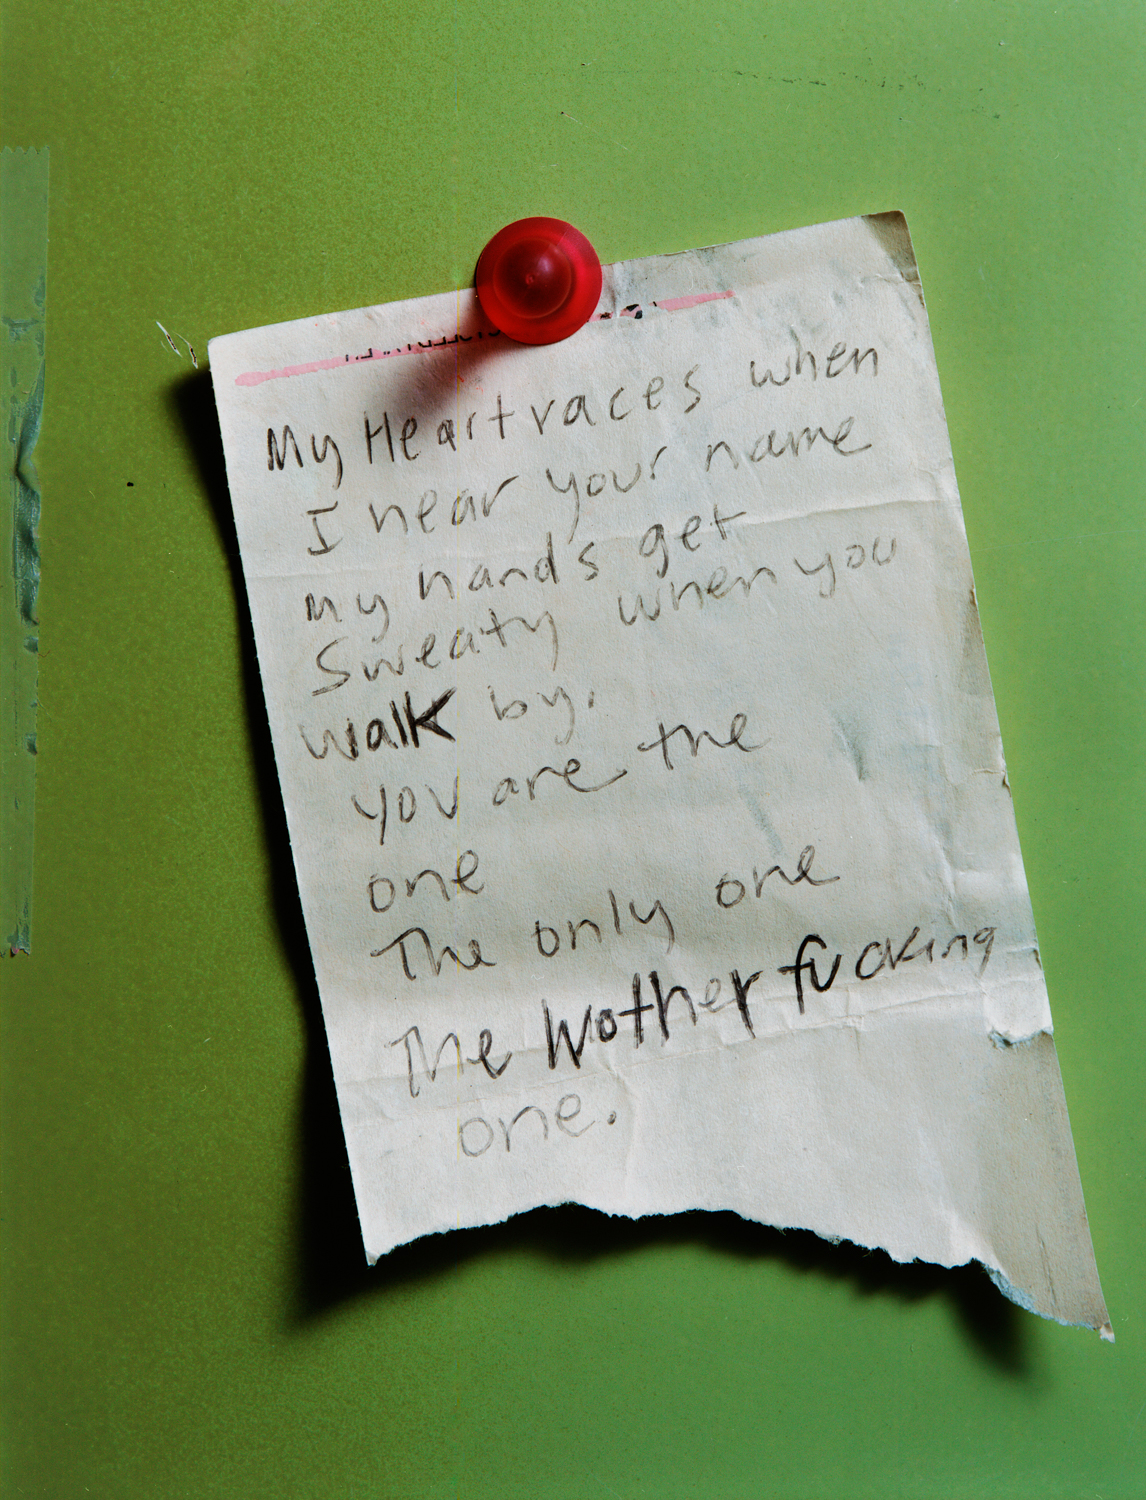 My Heart races when
I hear your name
my hands get
Sweaty when you
walk by.
you are the
one
The only one
The Mother fucking
one.